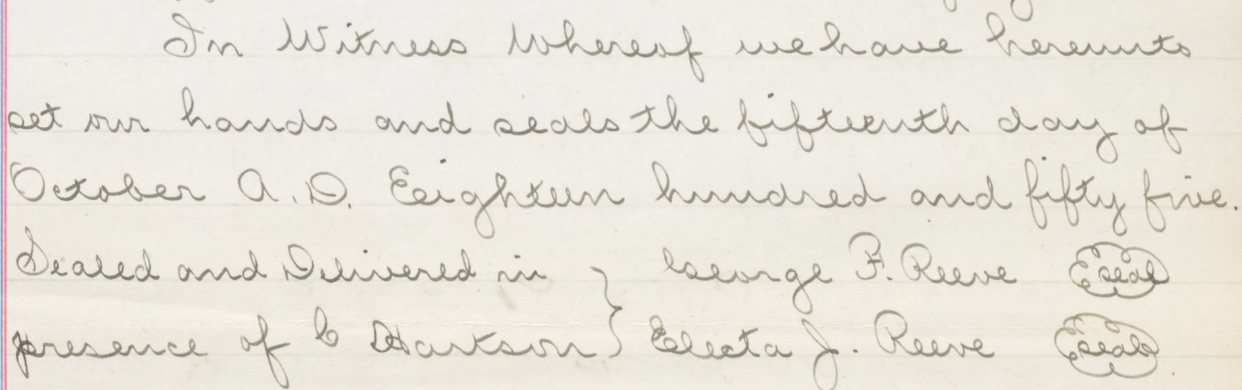 In Witness Whereof we have hereunto
set our hands and seals the fifteenth day of
October A.D. Eighteen hundred and fifty five.
Sealed and Delivered in } George F. Reeve Seal
presence of C Harkson } Electa J. Reeve Seal